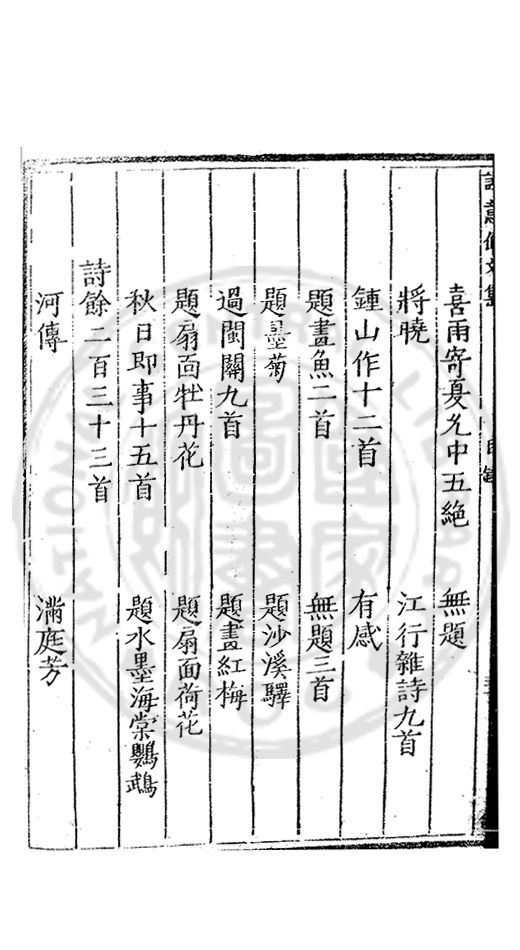 喜雨寄夏允中五絶　無題
將曉　江行雜詩九首
鍾山作十二首　有感
題畫魚二首　無題三首
題墨菊　題沙溪驛
過閩關九首　題畫紅梅
題扇靣牡丹花　題扇面荷花
秋日即事十五首　題水墨海棠鸚鵡
詩餘二百三十三首
河傳　滿庭芳